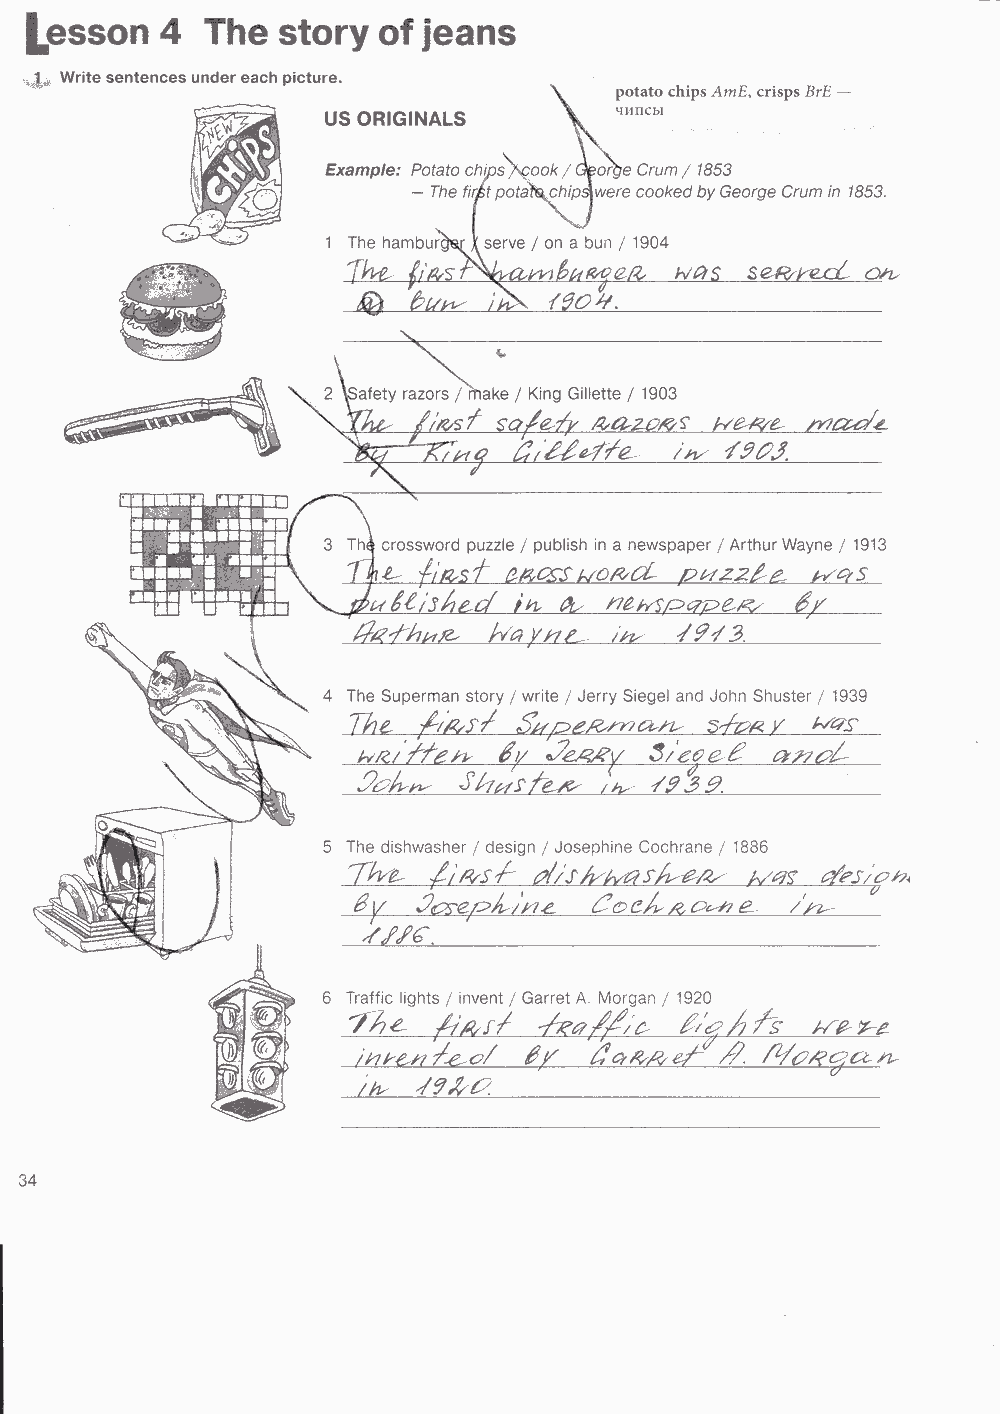 Lesson 4 The story of jeans
1 Write sentences under each picture.
potato chips AmE, crisps BrE —
чипсы
US ORIGINALS
NEW
CHIPS
Example: Potato chips / cook / George Crum / 1853
— The first potato chips were cooked by George Crum in 1853.
1 The hamburger / serve / on a bun / 1904
The first hamburger was served on
a bun in 1904.
2 Safety razors / make / King Gillette / 1903
The first safety razors were made
by King Gillette in 1903.
3 The crossword puzzle / publish in a newspaper / Arthur Wayne / 1913
The first crossword puzzle was
published in a newspaper by
Arthur Wayne in 1913.
4 The Superman story / write / Jerry Siegel and John Shuster / 1939
The first Superman story was
written by Jerry Siegel and
John Shuster in 1939.
5 The dishwasher / design / Josephine Cochrane / 1886
The first dishwasher was design
by Josephine Cochrane in
1886.
6 Traffic lights / invent / Garret A. Morgan / 1920
The first traffic lights were
invented by Garret A. Morgan
in 1920.
34